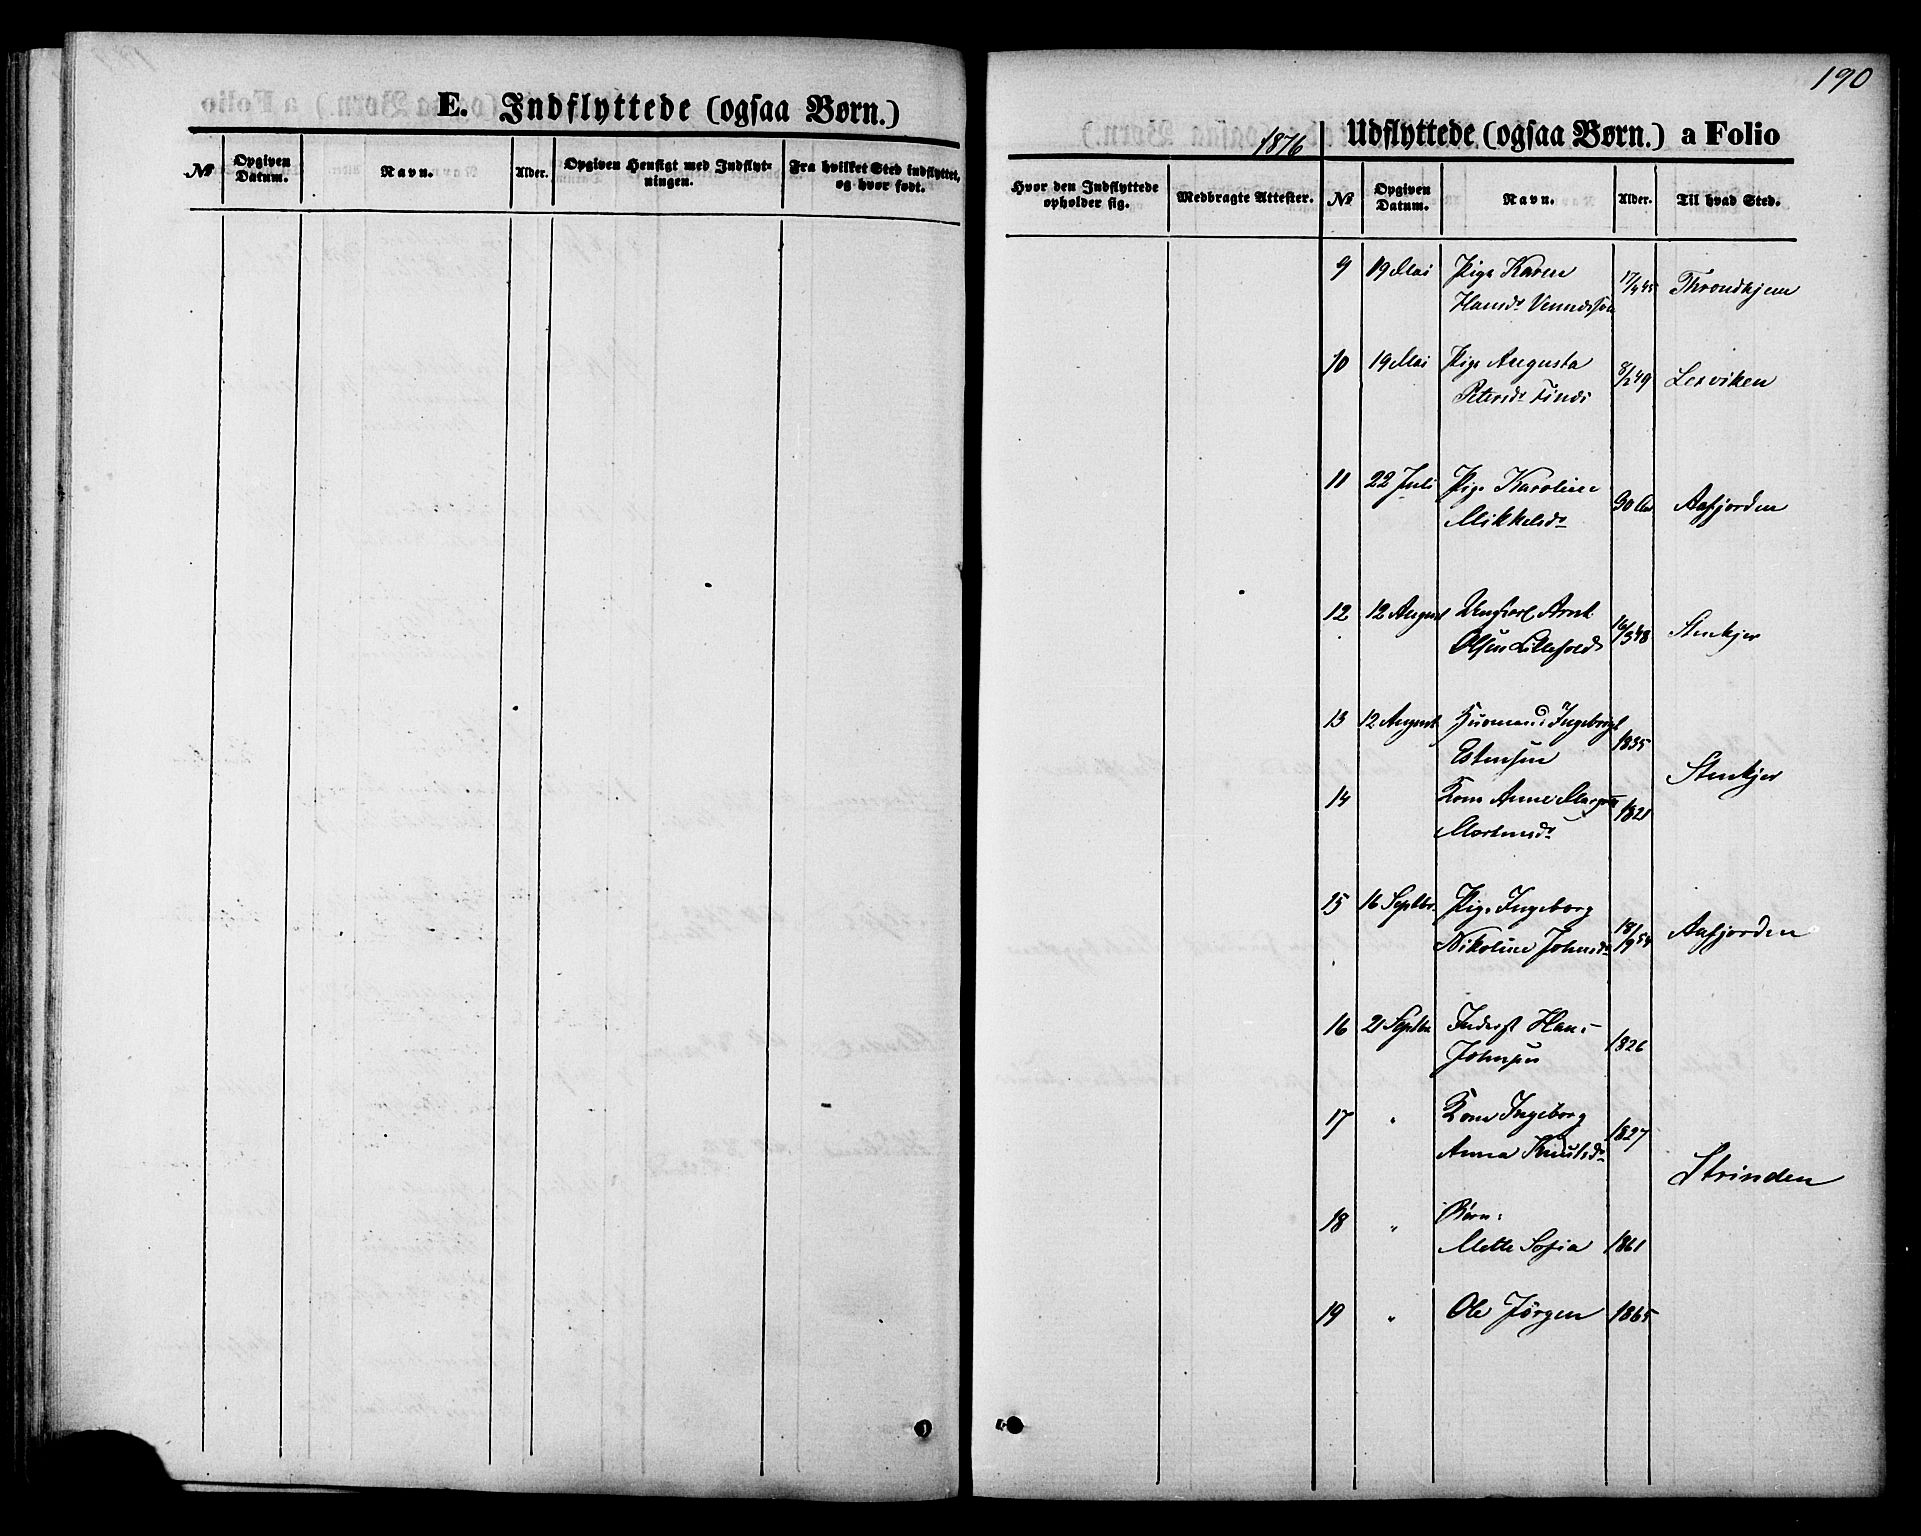 E. Indflyttede (ogsaa Børn.)
No
Opgiven Datum.
Navn.
Alder.
Opgiven Hensigt med Indflytningen.
Fra hvilket Sted indflyttet, og hvor født.
190
1876
Udflyttede (ogsaa Børn.) a Folio
Hvor den Indflyttede opholder sig.
Medbragte Attester.
No
Opgiven Datum.
Navn.
Alder.
Til hvad Sted.
9 19 Mai Pige Karen 17/4 45 Throndhjem
Hansdr
10 19 Mai Pige Augusta 8/2 49 Lexviken
Petersdr
11 22 Juli Pige Karoline 30 Aar Aafjorden
Mikkelsdr
12 12 August Ungkarl Arnt 16/3 48 Stenkjer
Olsen
13 12 August Husmand Ingebrigt 1835 Stenkjer
Estensen
14 Kone Anne 1821
Mortensdr
15 16 Septbr. Pige Ingeborg 18/9 54 Aafjorden
Nikoline Johnsdr
16 21 Septbr Inderst Hans 1826
Johnsen
17 " Kone Ingeborg 1827
Anna Knutsdr
Strinden
18 " Børn:
Mette Sofia 1861
19 " Ole Jørgen 1865